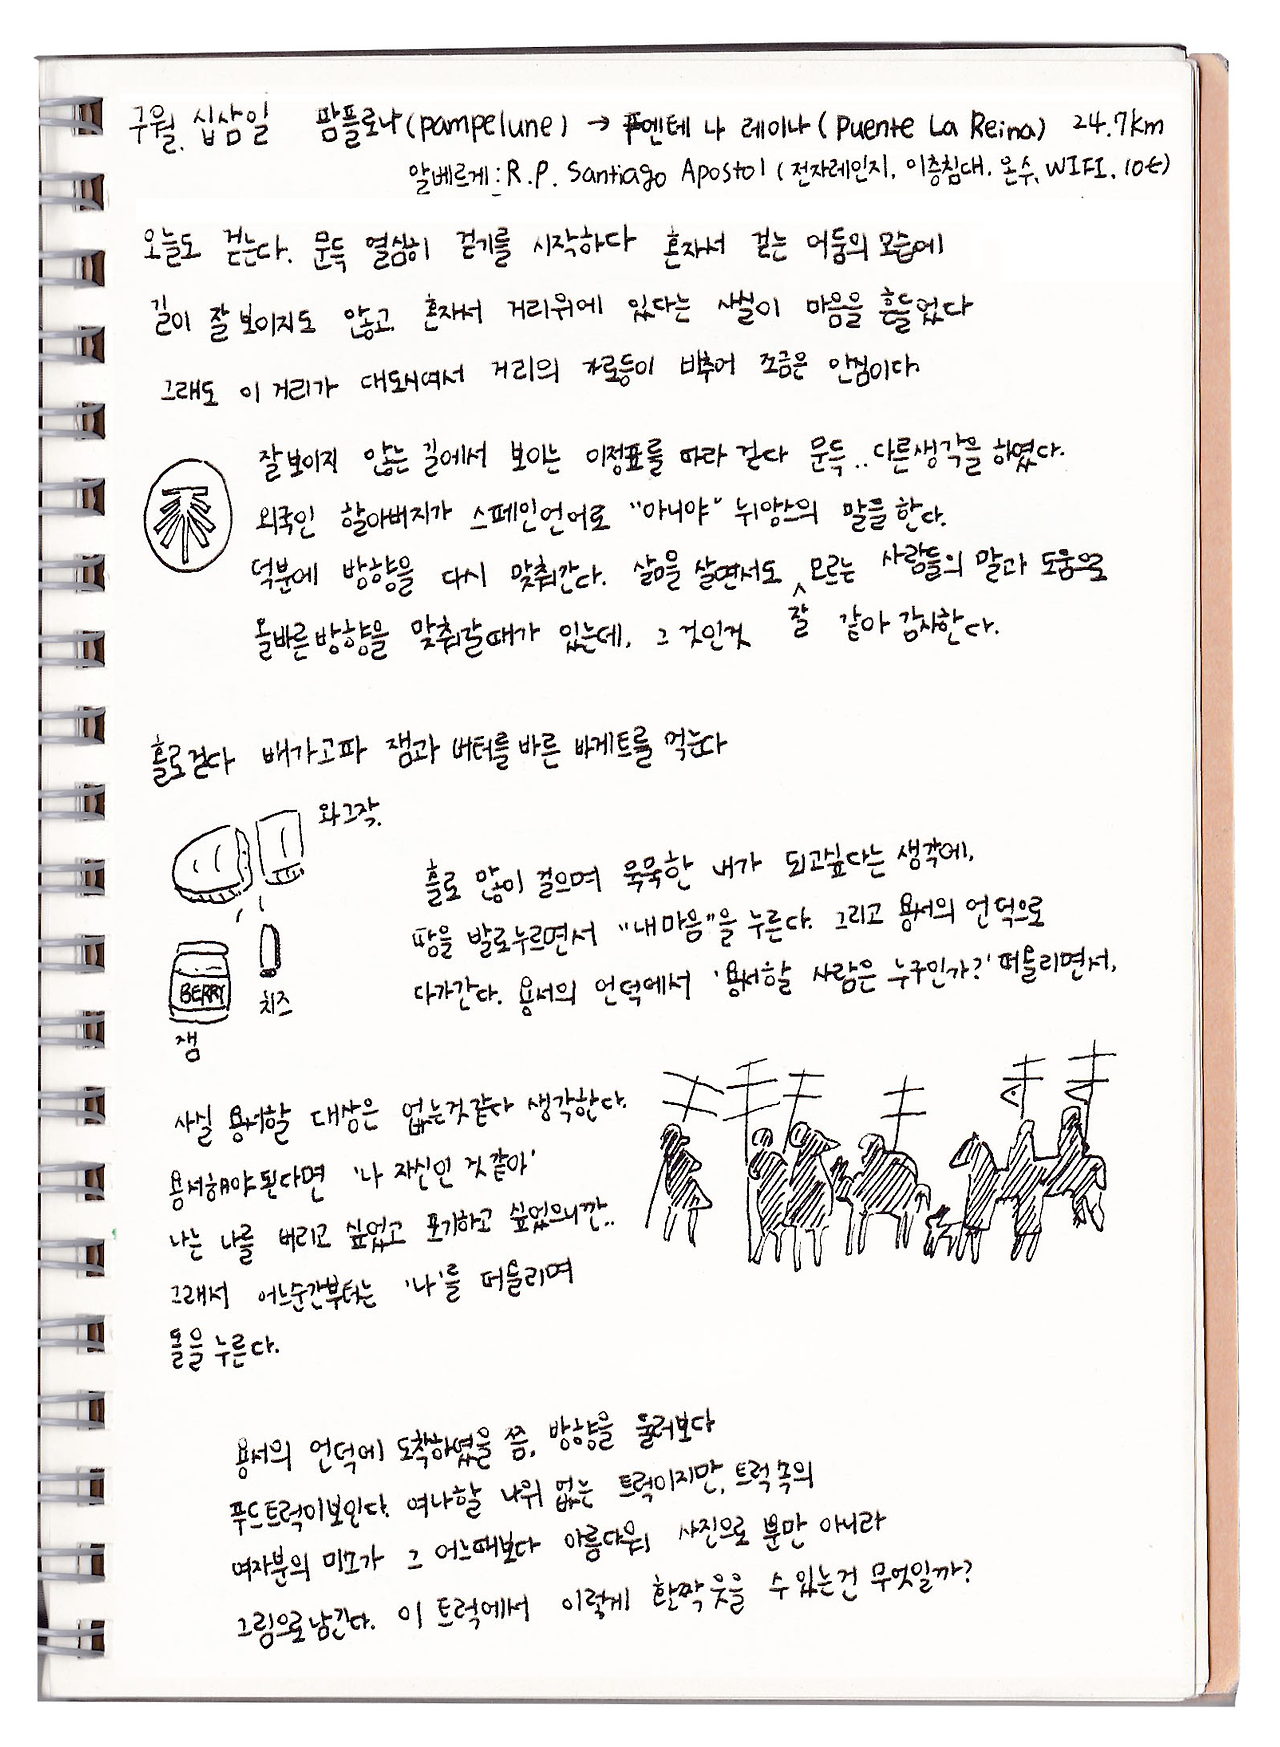 구월 십삼일 팜플로나(pampelune) → 푸엔테 나 레이나(Puente La Reina) 24.7km
알베르게:R.P. Santiago Apostol (전자레인지, 이층침대. 온수, WIFI, 10€)
오늘도 걷는다. 문득 열심히 걷기를 시작하다 혼자서 걷는 어둠의 모습에
길이 잘 보이지도 않고 혼자서 거리위에 있다는 사실이 마음을 흔들었다
그래도 이 거리가 대도시여서 거리의 가로등이 비추어 조금은 안심이다.
잘 보이지 않는 길에서 보이는 이정표를 따라 걷다 문득..다른생각을 하였다.
외국인 할아버지가 스페인언어로 "아니야" 뉘앙스의 말을 한다.
덕분에 방향을 다시 맞춰간다. 삶을 살면서도 모르는 사람들의 말과 도움으로
올바른 방향을 맞춰갈때가 있는데, 그 것인것 잘 같아 감사한다.
홀로걷다 배가고파 잼과 버터를 바른 바게트를 먹는다
와그작.
BERRY
잼
치즈
홀로 많이 걸으며 묵묵한 내가 되고싶다는 생각에,
땅을 발로누르면서 "내마음"을 누른다. 그리고 용서의 언덕으로
다가간다. 용서의 언덕에서 '용서할 사람은 누구인가?' 떠올리면서,
사실 용서할 대상은 없는것같다 생각한다.
용서해야된다면 '나 자신인 것 같아'
나는 나를 버리고 싶었고 포기하고 싶었으니깐..
그래서 어느순간부터는 '나'를 떠올리며
돌을 누른다.
용서의 언덕에 도착하였을 쯤, 방향을 둘러보다
푸드트럭이보인다. 여나할 나위 없는 트럭이지만, 트럭 속의
여자분의 미소가 그 어느때보다 아름다워 사진으로 뿐만 아니라
그림으로남긴다. 이 트럭에서 이렇게 활짝 웃을 수 있는건 무엇일까?